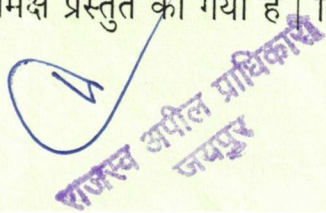 मक्ष प्रस्तुत की गयी है।
राजस्व अपील प्राधिकारी
जयपुर